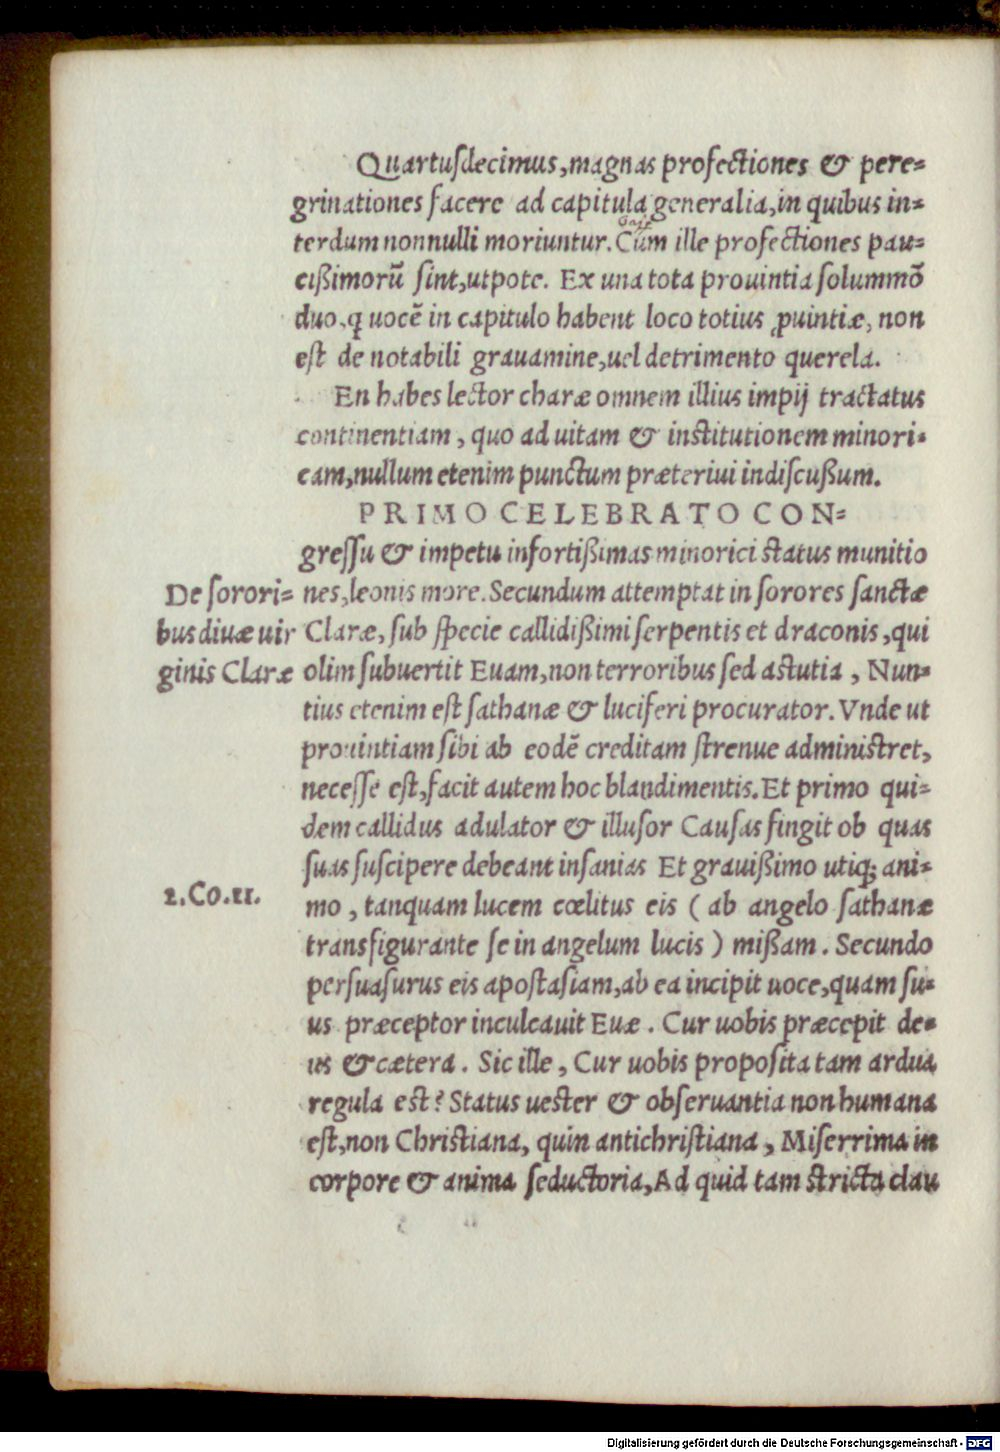 Quartusdecimus, magnas profectiones & pere=
grinationes facere ad capitula generalia, in quibus in=
terdum nonnulli moriuntur. Cum ille profectiones pau=
cißimorũ sint, utpote. Ex una tota prouintia solummõ
duo, ꝗ uocẽ in capitulo habent loco totius ꝓuintiæ, non
est de notabili grauamine, uel detrimento querela.
En habes lector charæ omnem illius impij tractatus
continentiam, quo ad uitam & institutionem minori=
cam, nullum etenim punctum præteriui indiscußum.
PRIMO CELEBRATO CON=
gressu & impetu infortißimas minorici status munitio
De sorori=
nes, leonis more. Secundum attemptat in sorores sanctæ
bus diuæ uir
Claræ, sub specie callidißimi serpentis et draconis, qui
ginis Claræ
olim subuertit Euam, non terroribus sed astutia, Nun=
tius etenim est sathanæ & luciferi procurator. Vnde ut
prouintiam sibi ab eodẽ creditam strenue administret,
necesse est, facit autem hoc blandimentis. Et primo qui=
dem callidus adulator & illusor Causas fingit ob quas
suas suscipere debeant insanias Et grauißimo utiq; ani=
2. Co. 11.
mo, tanquam lucem cœlitus eis ( ab angelo sathanæ
transfigurante se in angelum lucis ) mißam. Secundo
persuasurus eis apostasiam, ab ea incipit uoce, quam su=
us præceptor inculcauit Euæ. Cur uobis præcepit de=
us & cætera. Sic ille, Cur uobis proposita tam ardua
regula est? Status uester & obseruantia non humana
est, non Christiana, quin antichristiana, Miserrima in
corpore & anima seductoria, Ad quid tam stricta clau
Digitalisierung gefördert durch die Deutsche Forschungsgemeinschaft - DFG